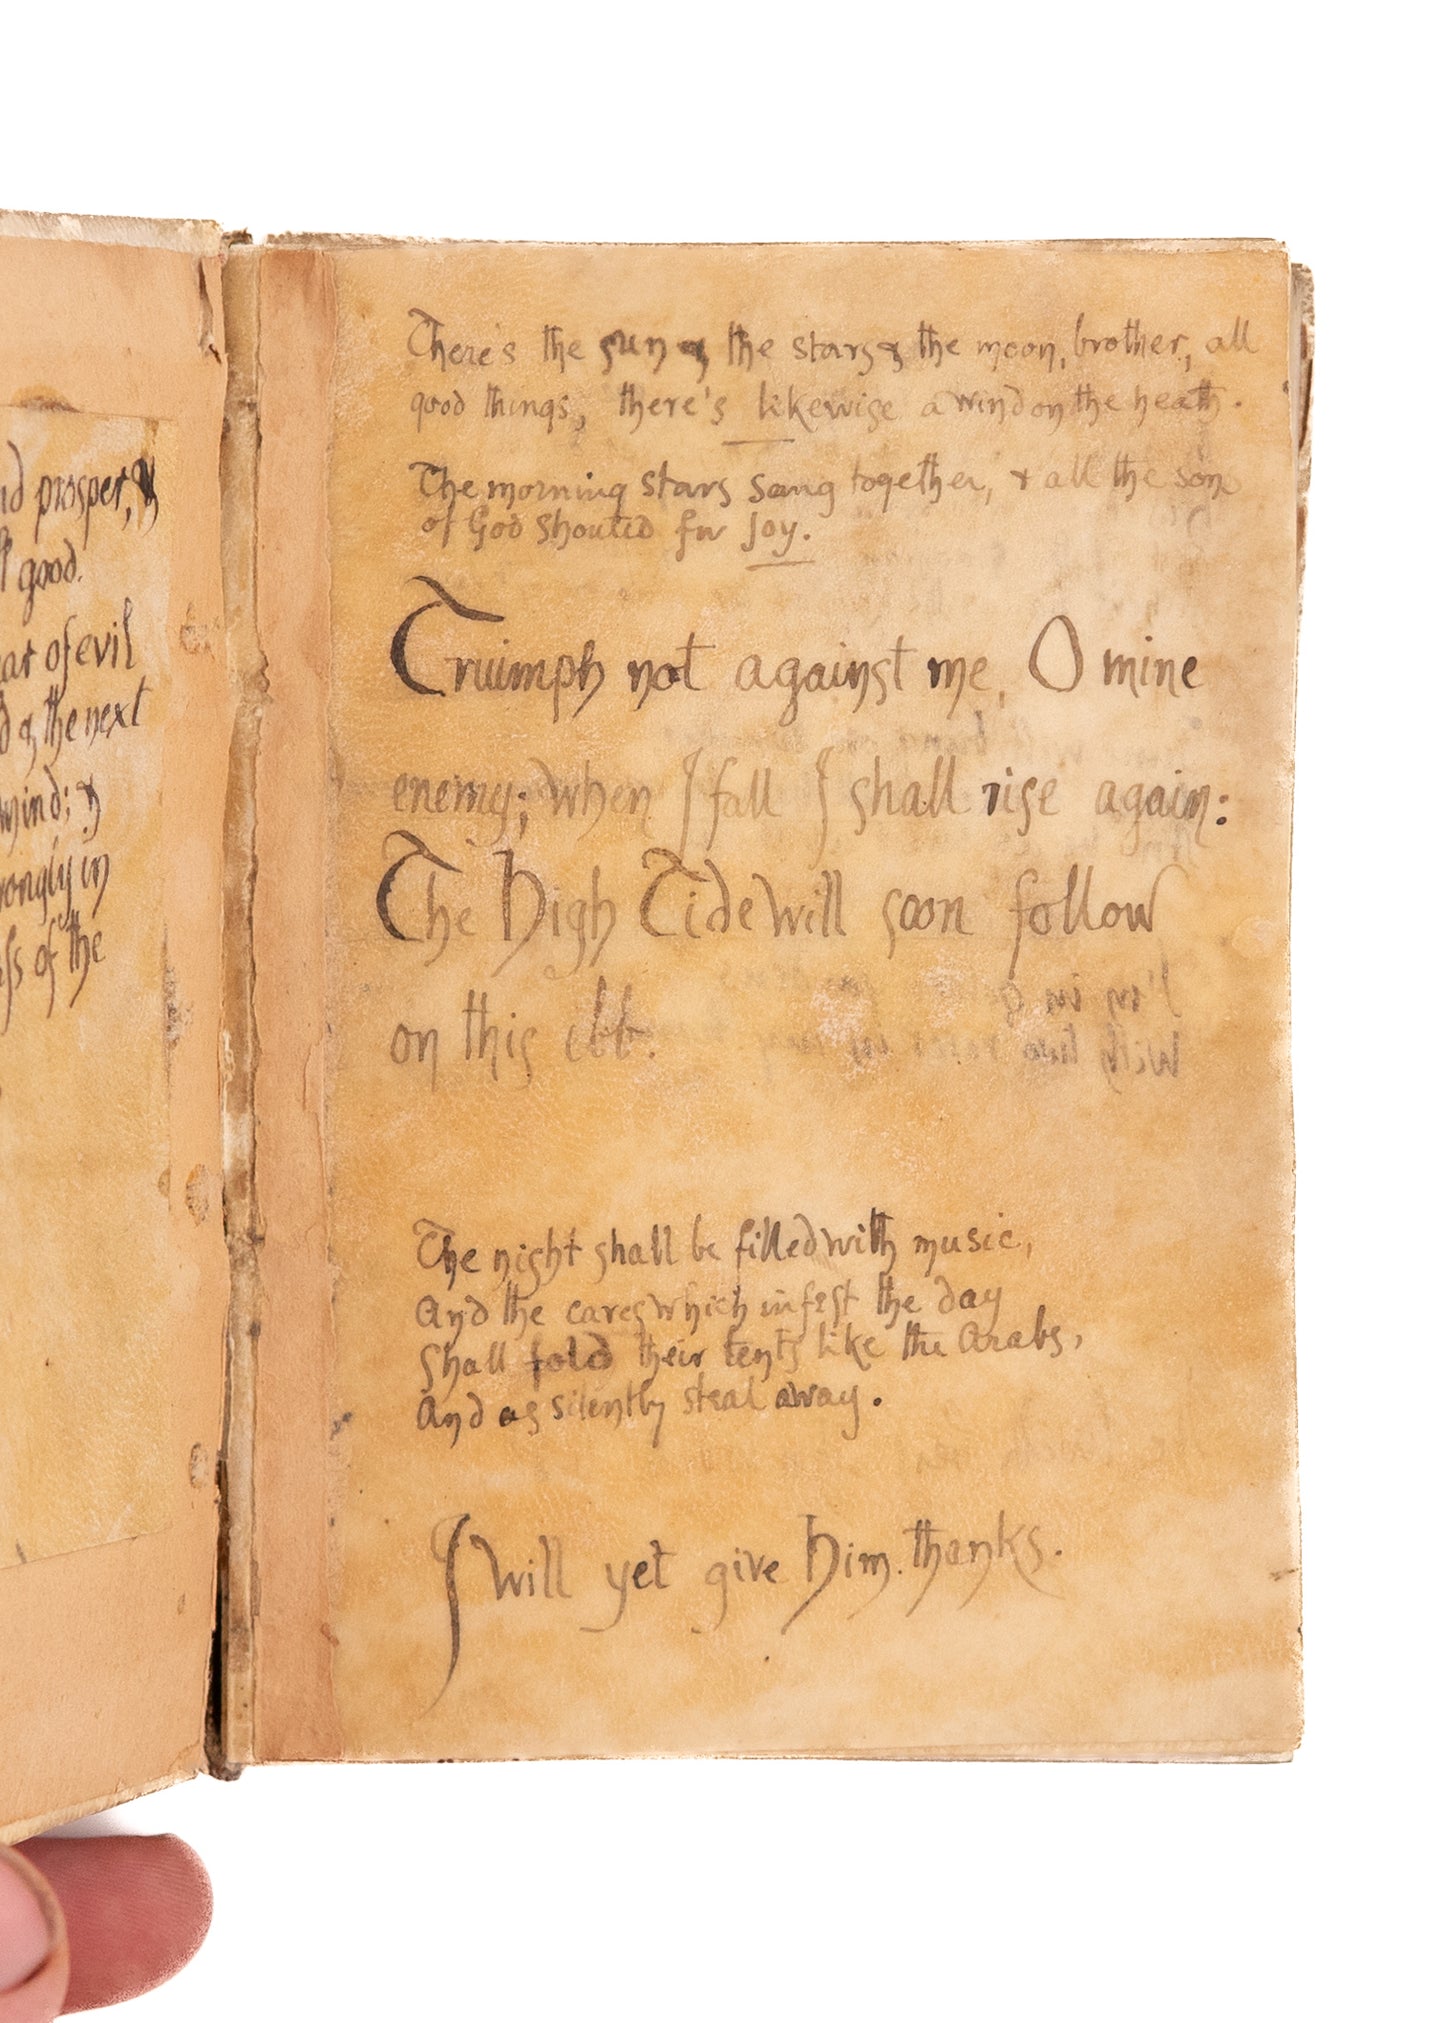 nd prosper, &
ll good.
of evil
d & the next
wind; &
rongly in
of the
There's the sun & the stars & the moon, brother, all
good things, there's likewise a wind on the heath.
The morning stars sang together, & all the sons
of God shouted for joy.
Truimph not against me, O mine
enemy; when I fall I shall rise again:
The High Tide will soon follow
on this ebb.
The night shall be filled with music,
And the cares which infest the day
Shall fold their tents like the Arabs,
And as silently steal away.
I will yet give Him thanks.